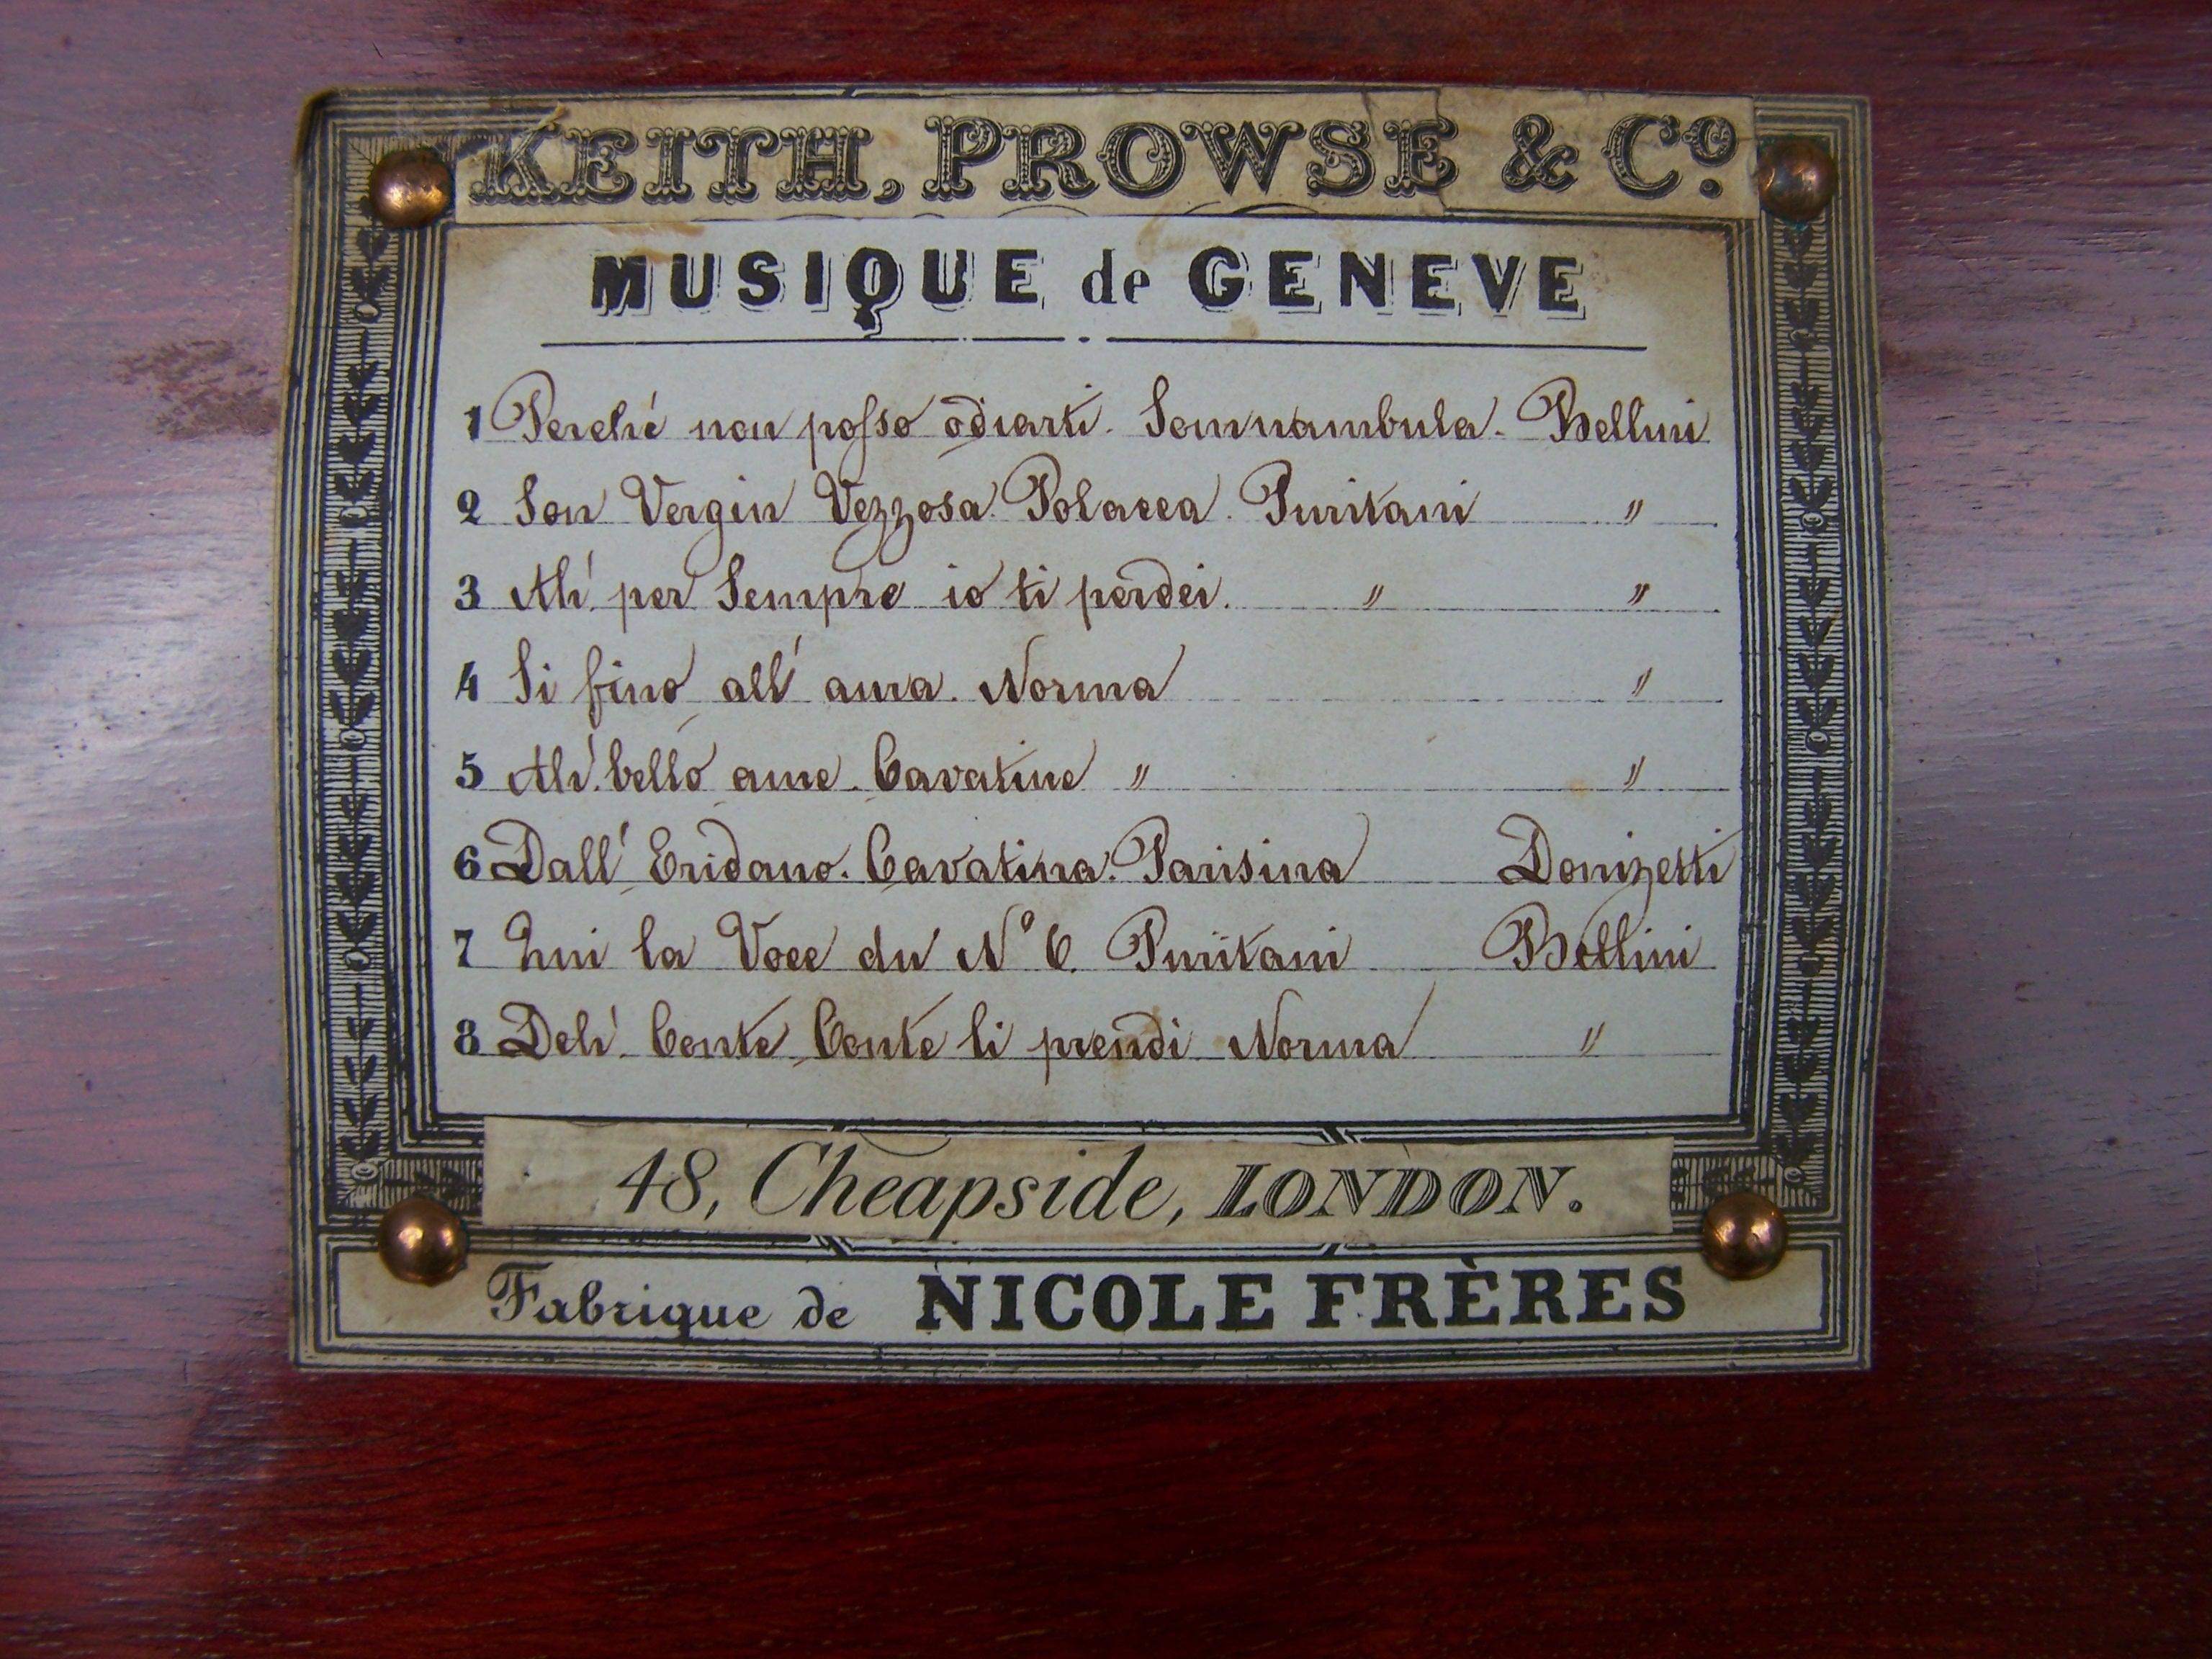 KEITH, PROWSE & Co.
MUSIQUE de GENEVE
1 Perché non posso odiarti. Somnambula. Bellini
2 Son Vergin Vezzosa. Polacca. Puritani "
3 Ah! per Sempre io ti perdei. " "
4 Si fino all' aura. Norma "
5 Ah! bello ame. Cavatine " "
6 Dall' Eridano. Cavatina. Parisina Donizetti
7 Qui la Voce du No 6. Puritani Bellini
8 Deh! Conte Conte li prendi Norma "
48, Cheapside, LONDON.
Fabrique de NICOLE FRÈRES